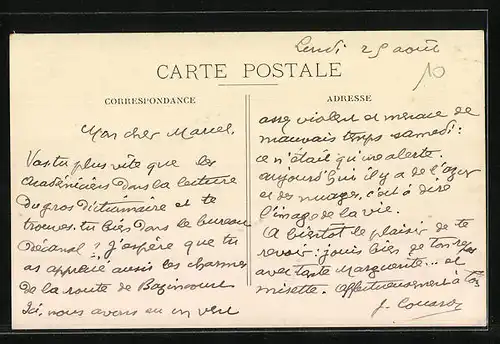 Lundi 25 août
10
CARTE POSTALE
CORRESPONDANCE
ADRESSE
Mon cher Marcel,
Vas tu plus vite que les
académiciens dans la lecture
du gros dictionnaire et te
trouves tu bien dans le bureau
Décanal ? J'espère que tu
as apprécié aussi les charmes
de la route de Bazincourt
Ici, nous avons eu un vent
assez violent et menace de
mauvais temps samedi :
ce n'était qu'une alerte.
aujourd'hui il y a de l'azur
et des nuages, c'est à dire
l'image de la vie.
A bientôt le plaisir de te
revoir : jouis bien de ton repos
avec tante Marguerite... et
misette. Affectueusement à toi
J.